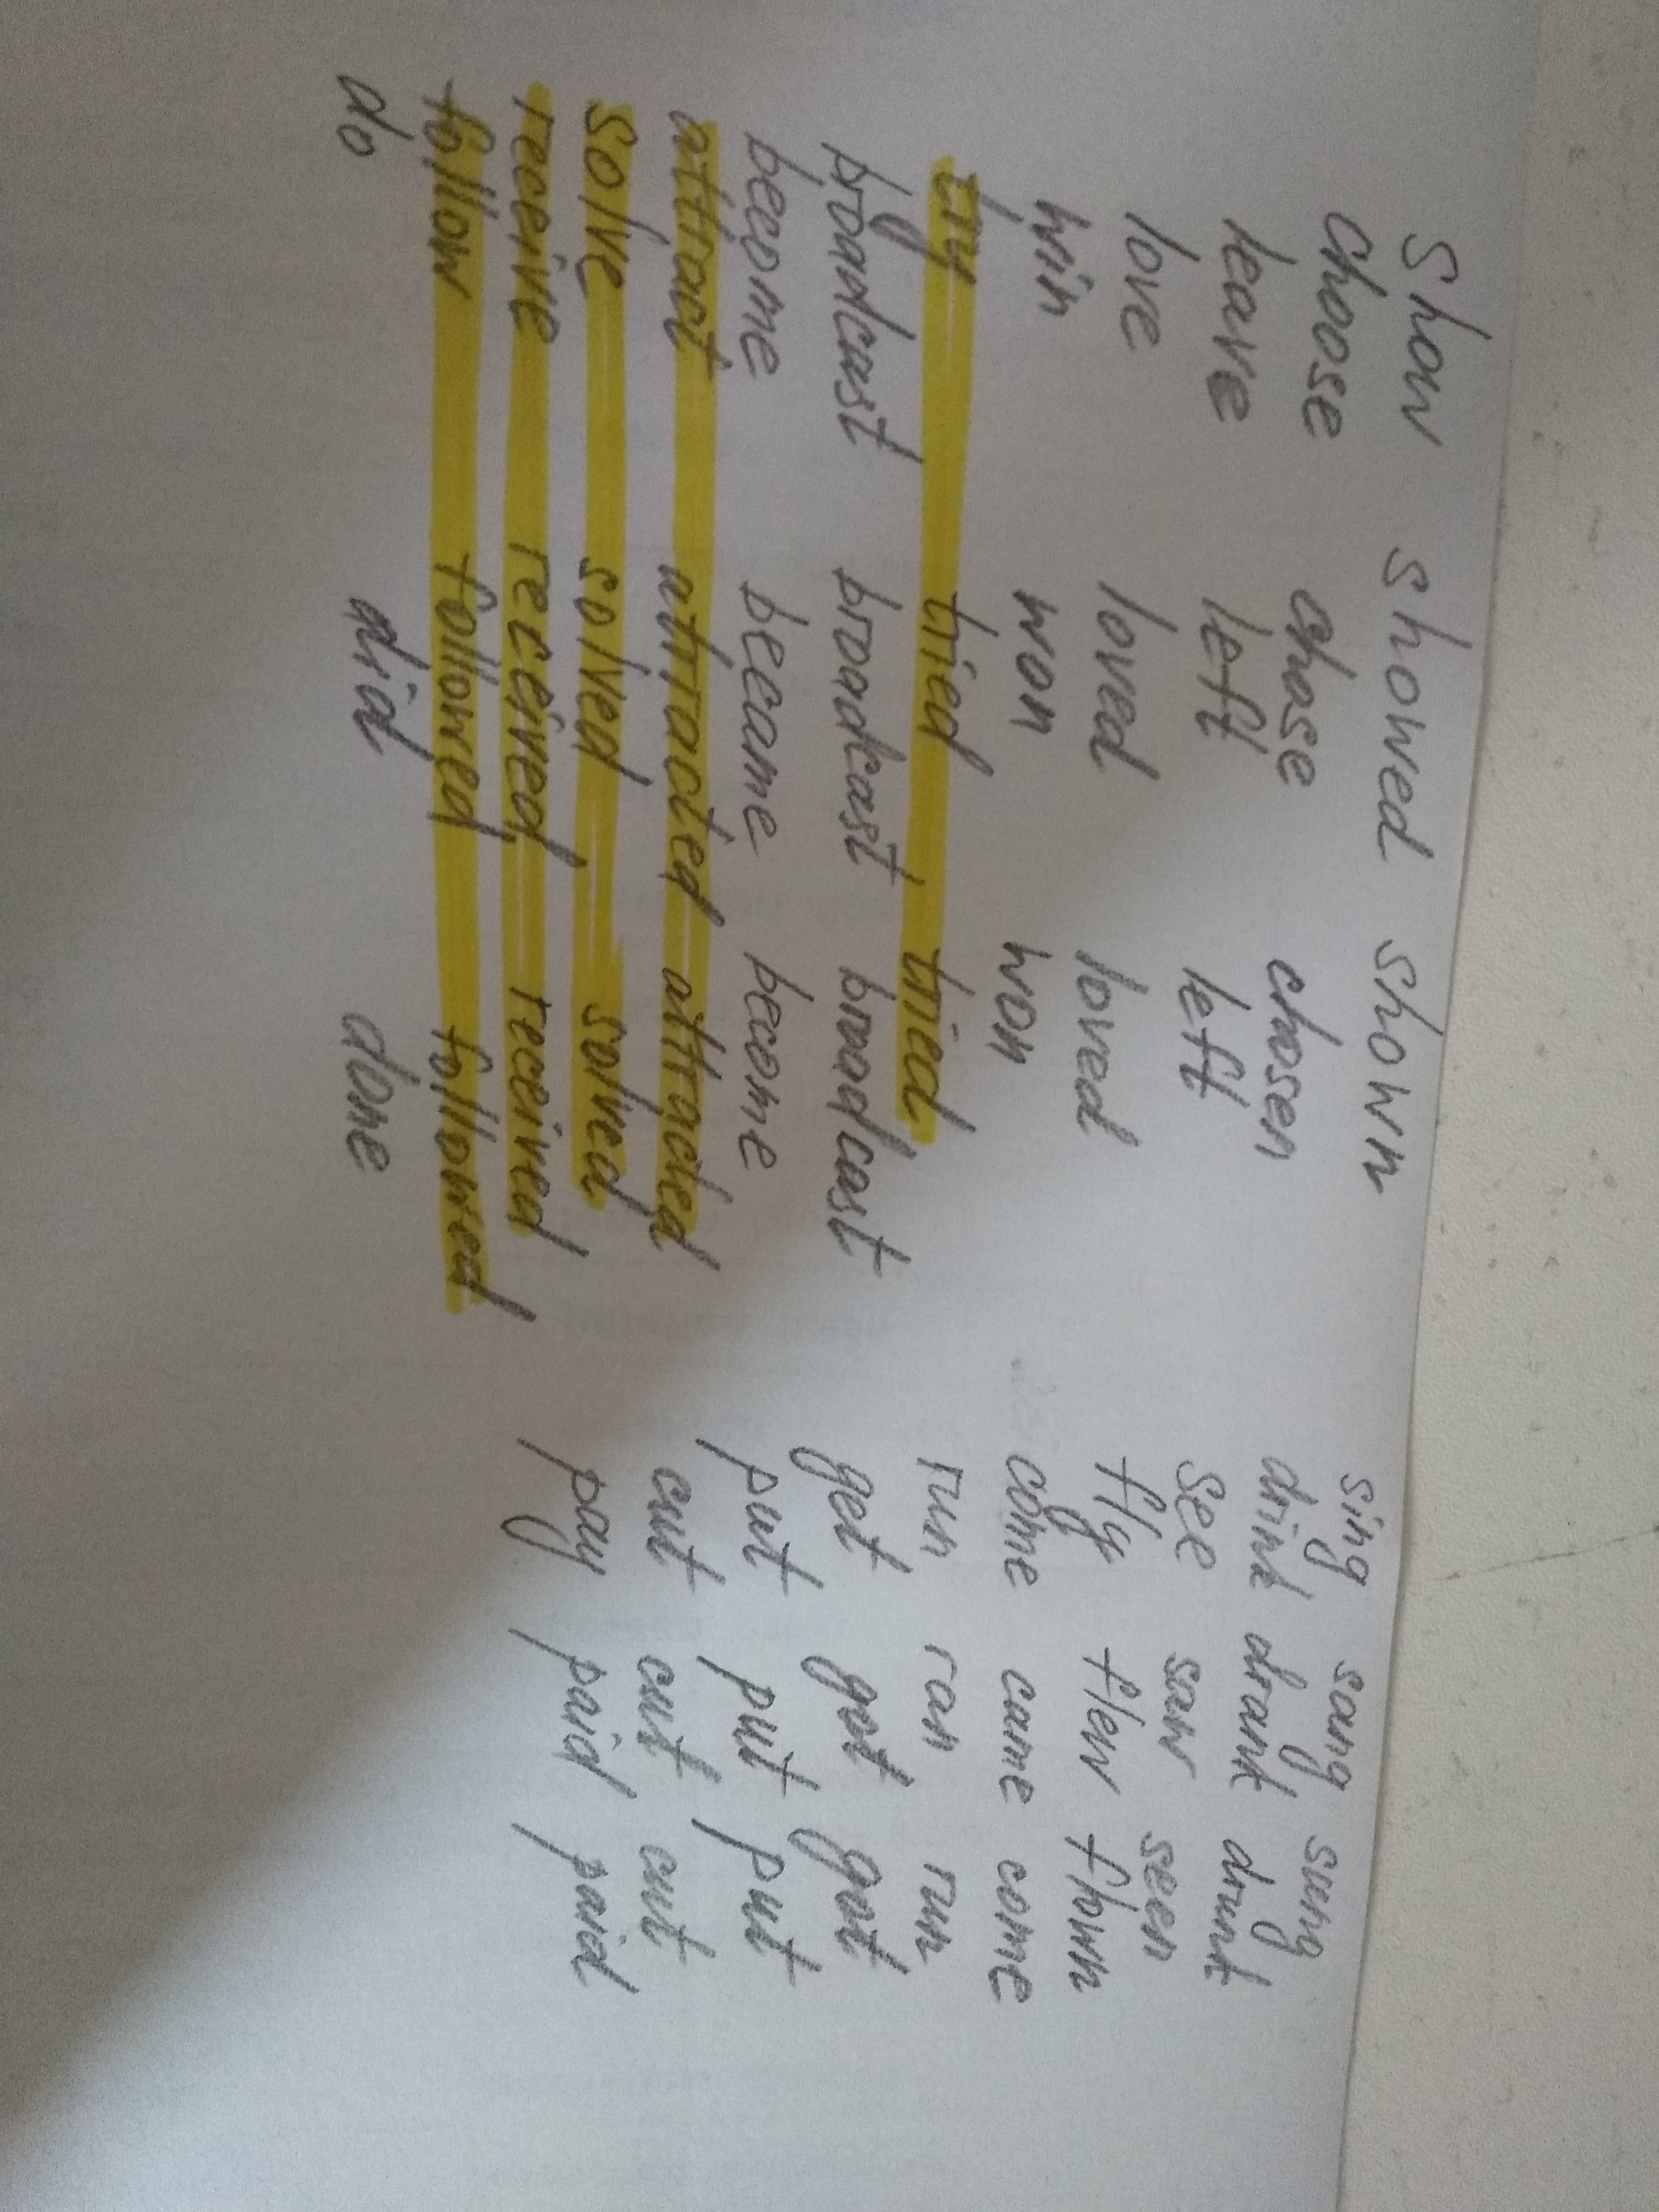 show showed shown
choose chose chosen
leave left left
love loved loved
win won won
try tried tried
broadcast broadcast broadcast
become became become
attract attracted attracted
solve solved solved
receive received received
follow followed followed
do did done
sing sang sung
drink drank drunk
see saw seen
fly flew flown
come came come
run ran run
get got got
put put put
cut cut cut
pay paid paid